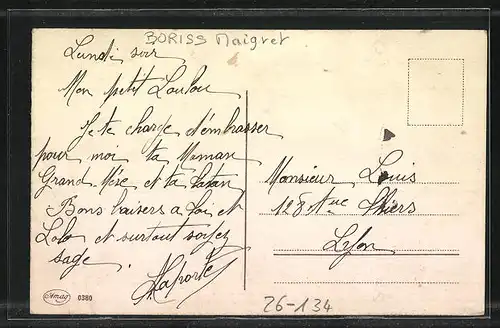 BORISS Maigret
Lundi soir
Mon petit Loulou
Je te charge d'embrasser
pour moi ta Maman
Grand-Mère et ta Tatan
Bons baisers a toi et
Lolo et surtout soyez
sage.
Laporte
Monsieur Louis
128 Thiers
Lyon
Amag 0380
26-134